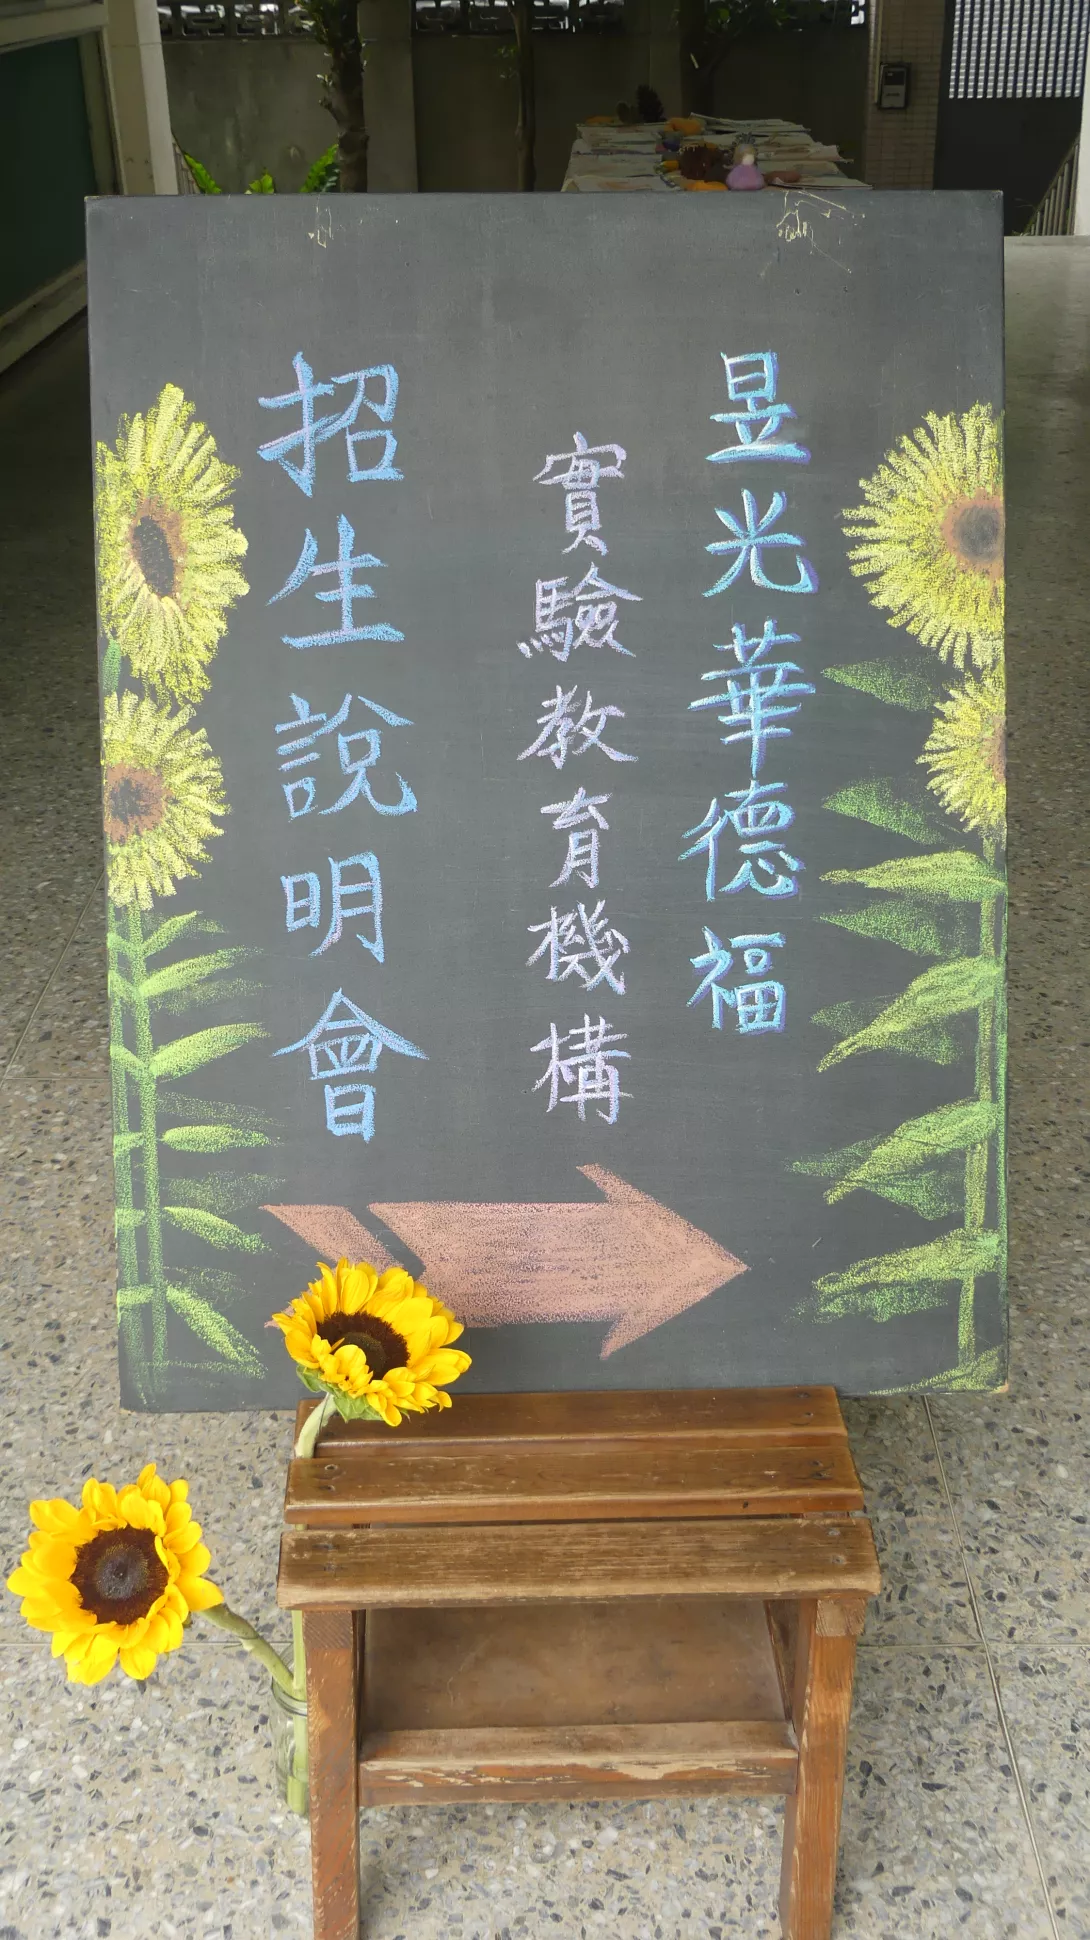 昱光華德福
實驗教育機構
招生說明會